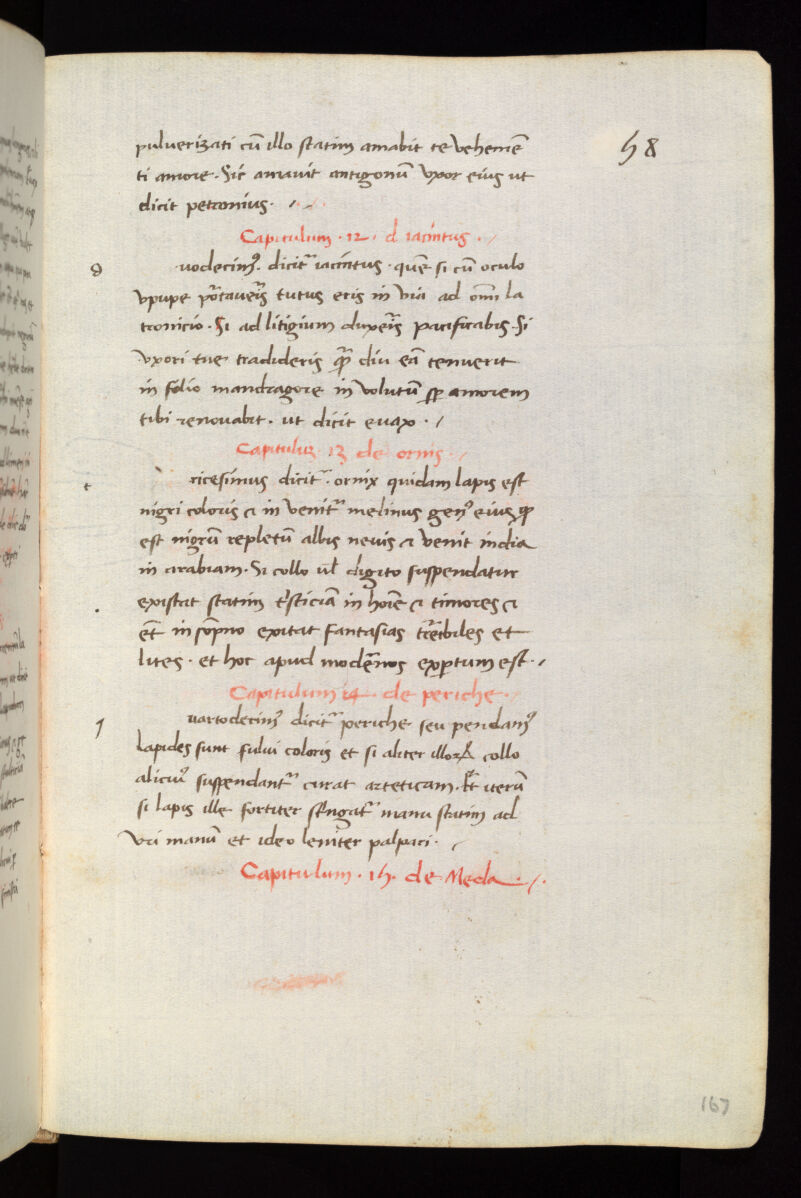 58
pulverizati cū illo statim amabit te vehemē
ti amore. Sic amavit antigonū vxor eius ut
dicit petronius.
Capitulum. 12. d iacintus.
d
uodecimꝰ. dicit̄ iacintus. quē si cū oculo
vpupe portaveris tutus eris in via ad omē la
tronicio. Si ad litigium duxeris pacificabis. Si
vxori tue tradideris diu eā tenuerit
in folio mandragore in volutū sp amorem
tibi renovabit. ut dicit evax.
Capitulum 13 de ornis.
t
ricesimus dicit̄. ornix quidam lapis est
nigri coloris et in venit̄ melinus genꝰ eius
est nigrū repletū albis nevis et venit india
in arabiam. Si collo ul digito suspendatur
existat statim tristiciā in hoīe et timores et
et̄ in sompno exitat fantasias terribiles et
lites. et hoc apud modernos expertum est.
Capitulum 14. de periche.
q
uartodecimꝰ dicit̄ periche seu pendamꝰ
lapides sunt fului coloris et si aliter illoꝝ collo
alicuiꝰ suspendant̄ curat arteticam. Et iterū
si lapis ille fortiter stringat̄ manu statim ad
uri manū et ideo leniter palpari.
Capitulum. 15. de Meda.
167